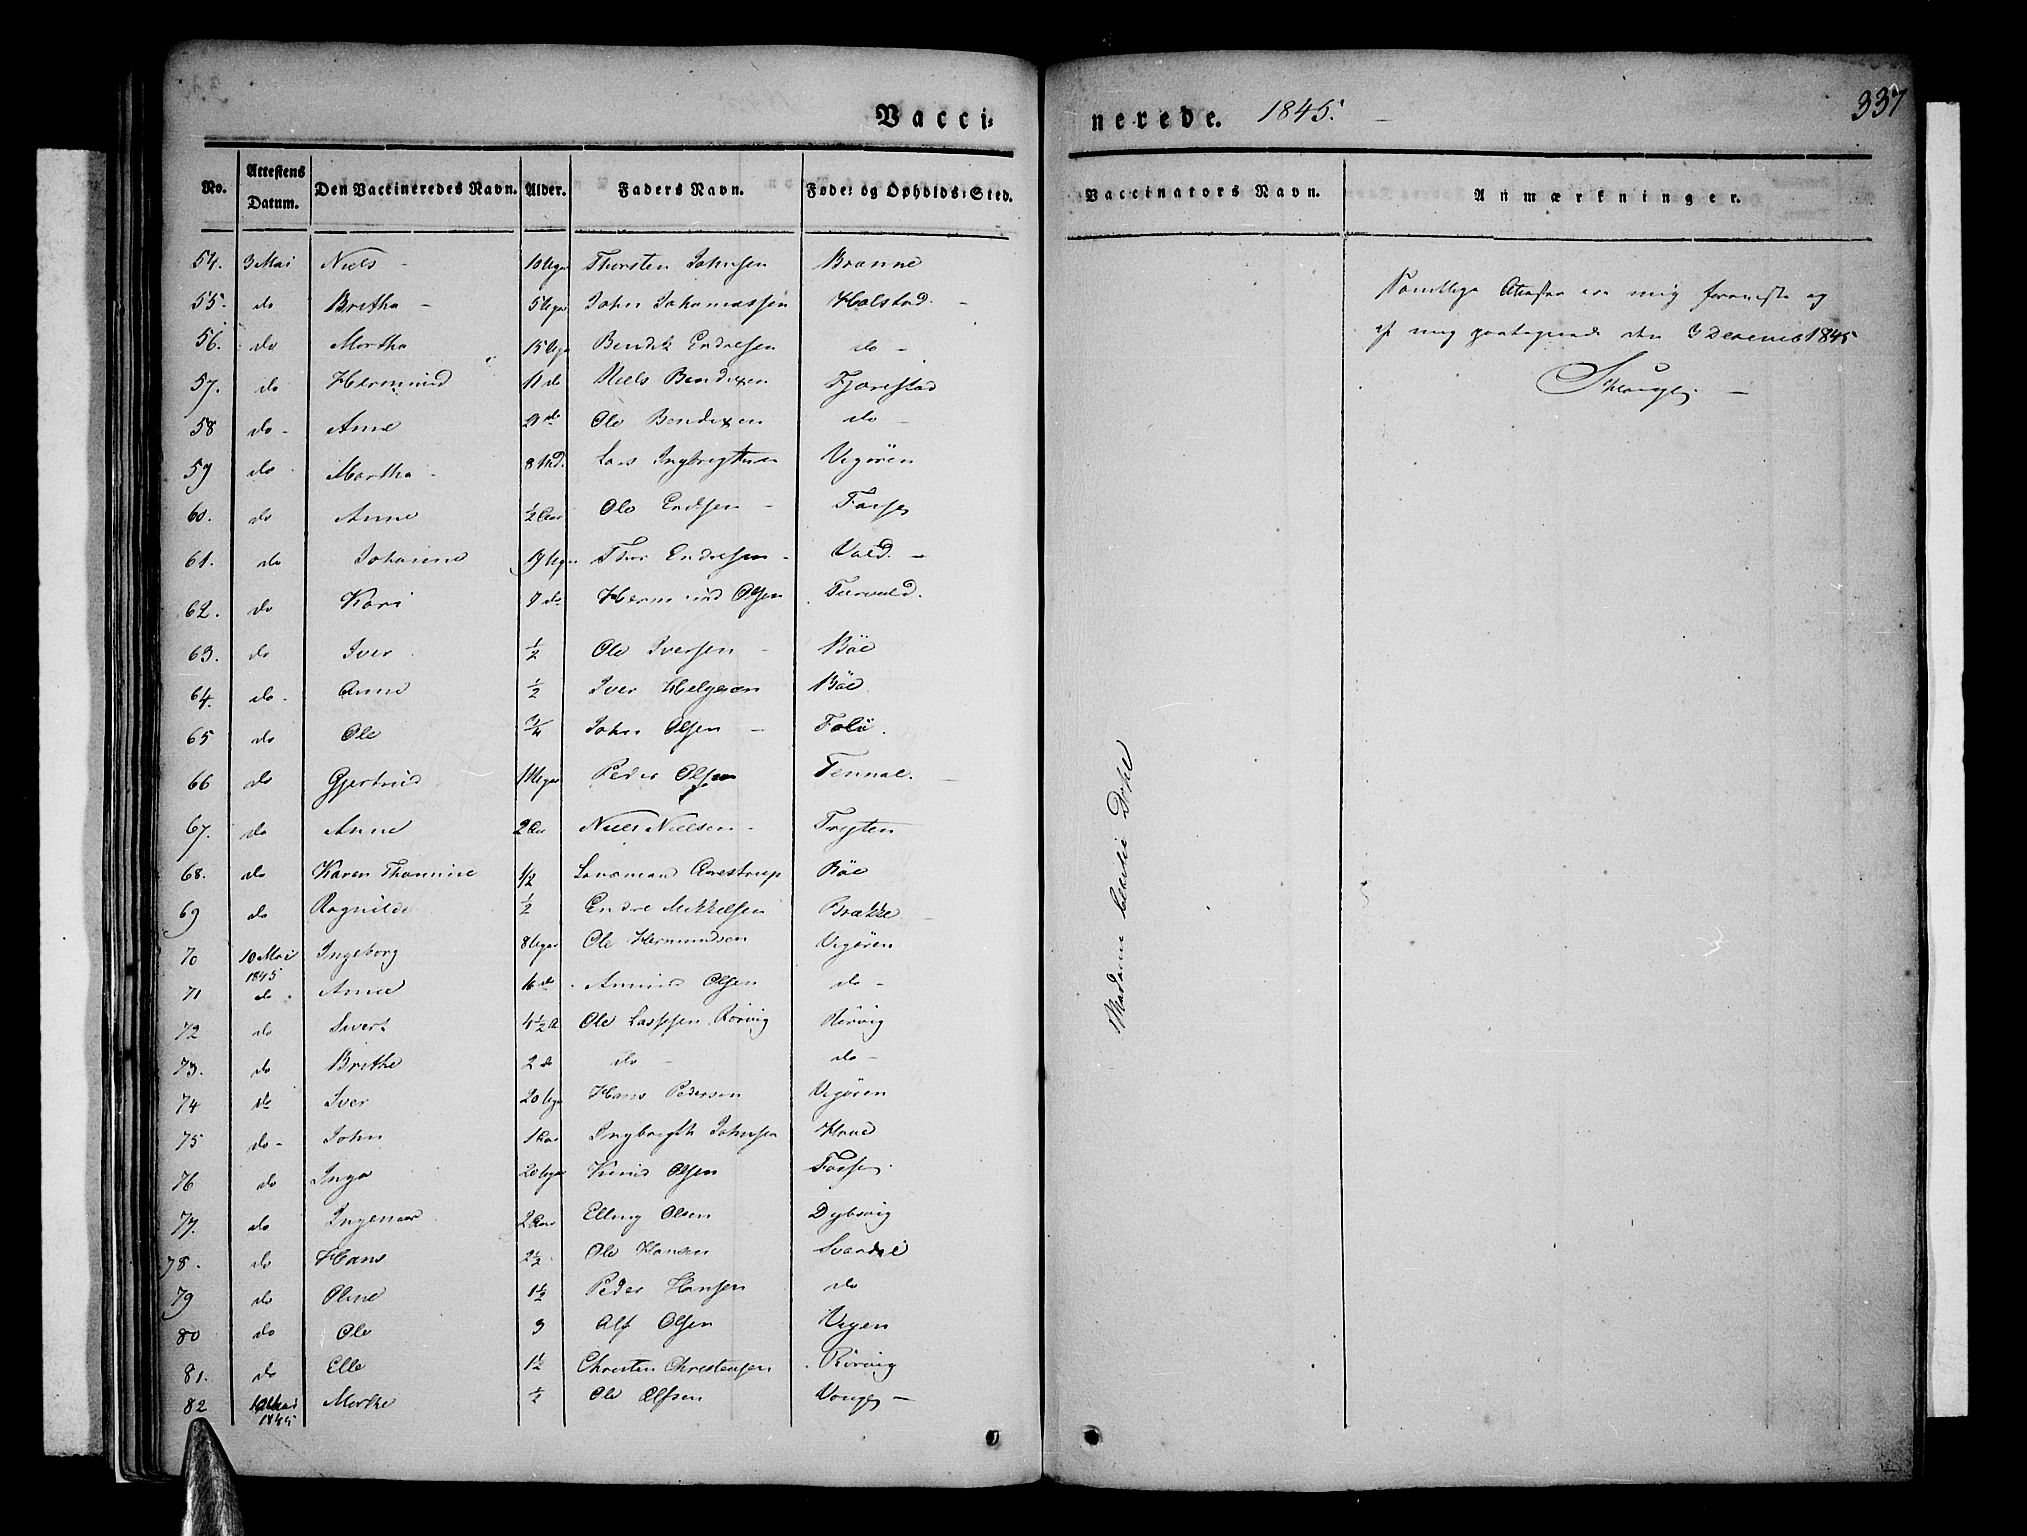 Vacci-
nerede. 1845.
337
No. Attestens Datum. Den Vaccineredes Navn. Alder. Faders Navn. Føde- og Opholds-Sted.
Vaccinators Navn. Anmærkninger.
54. 3 Mai Niels - 10 Uger Thorsten Johnsen Brønne
55. do Bretha - 5 Uger John Johannessen Holstad. -
56. do Martha 15 Uger Bendik Endresen do -
57. do Hermund 11 do Niels Bendixen Fjærestad
58 do - Anne 9 do Ole Bendixen do -
59 do Martha - 8 Md. Lars Ingbrigtsen Vigøren
60. do Anne ½ Aar Ole Endsen - Fosse
61. do Johanne 19 Uger Thor Endresen - Vold. -
62. do Kari 9 do Hermund Olsen
63. do Iver ½ Ole Iversen - Böe
64. do - Anne ½ Iver Helgesen Böe
65 do Ole ¾ John Olsen -
66 do Gjertrud Peder Olsen Tennøe. -
67. do Anne 2 Aar Niels Nielsen - Trygten
68. do Karen Thomine 1/2 Lensmand Aarestrup Böe
69 do Ragnilde ½ Endre Mikkelsen Brække -
70 10 Mai 1845 Ingeborg 8 Uger Ole Hermundsen Vigøren
71 do Anne 16 do Amund Olsen do -
72 do Sivert 4½ A Ole Lassesen Rørvig Rørvig
73. do Brithe 2 do do - do -
74 do Iver 20 Uger Hans Pedersen Vigøren
75 do - John 1 Aar Ingbrigth Johnsen
76 do Inga 20 Uger Knud Olsen Fosse.
77. do Ingemar 2 Aar Elling Olsen Dybsvig
78. do Hans 2½ Ole Hansen
79 do Oline 1½ Peder Hansen do
80 do Ole 3 Alf Olsen Vigen
81. do Elle 1½ Christen Christensen Rørvig
82 10 Mai 1845 Marthe ½ Ole Olsen -
Madame Dahl
Samtlige Attester ere mig foreviste og
af mig paategnede den 3 December 1845